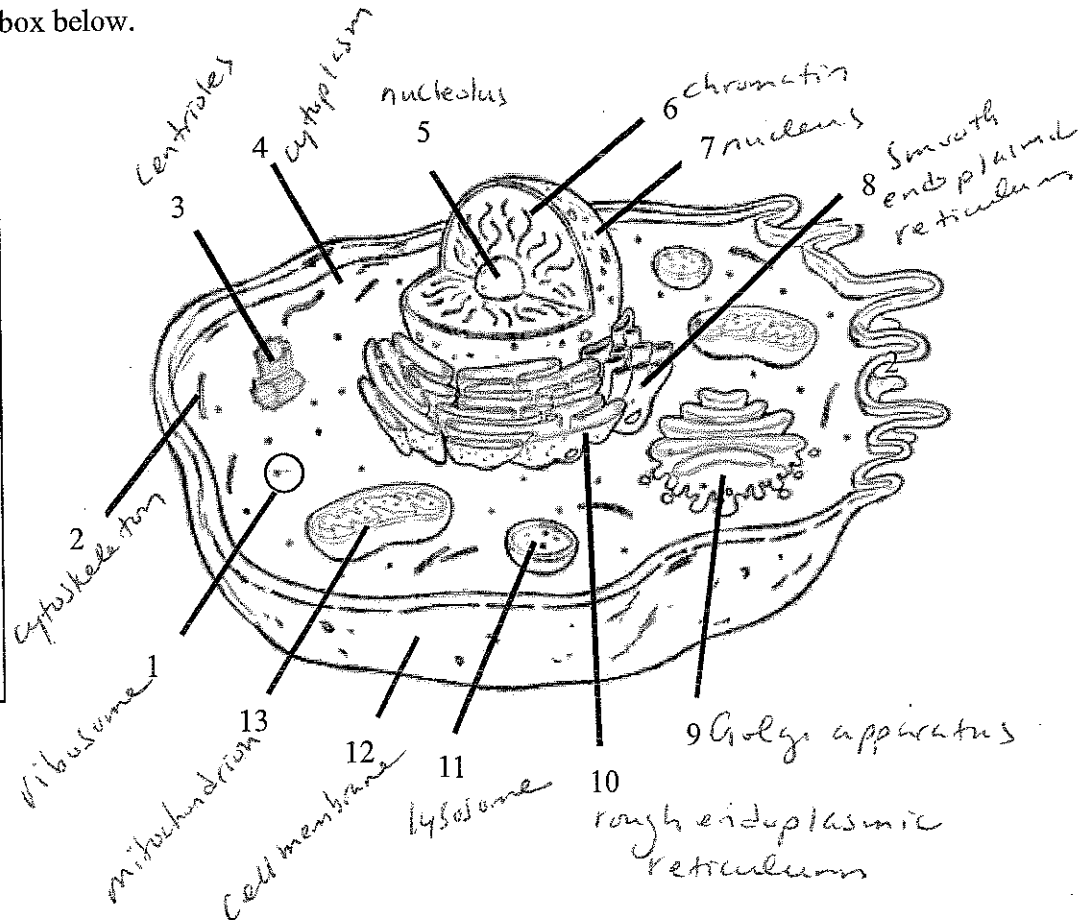 box below.
centrioles
3
4 cytoplasm
nucleolus
5
6 chromatin
7 nucleus
8 Smooth
endoplasmic
reticulum
2
2
cytoskeleton
1
ribosome
13
mitochondrion
12
cell membrane
11
lysosome
10
rough endoplasmic
reticulum
9 Golgi apparatus